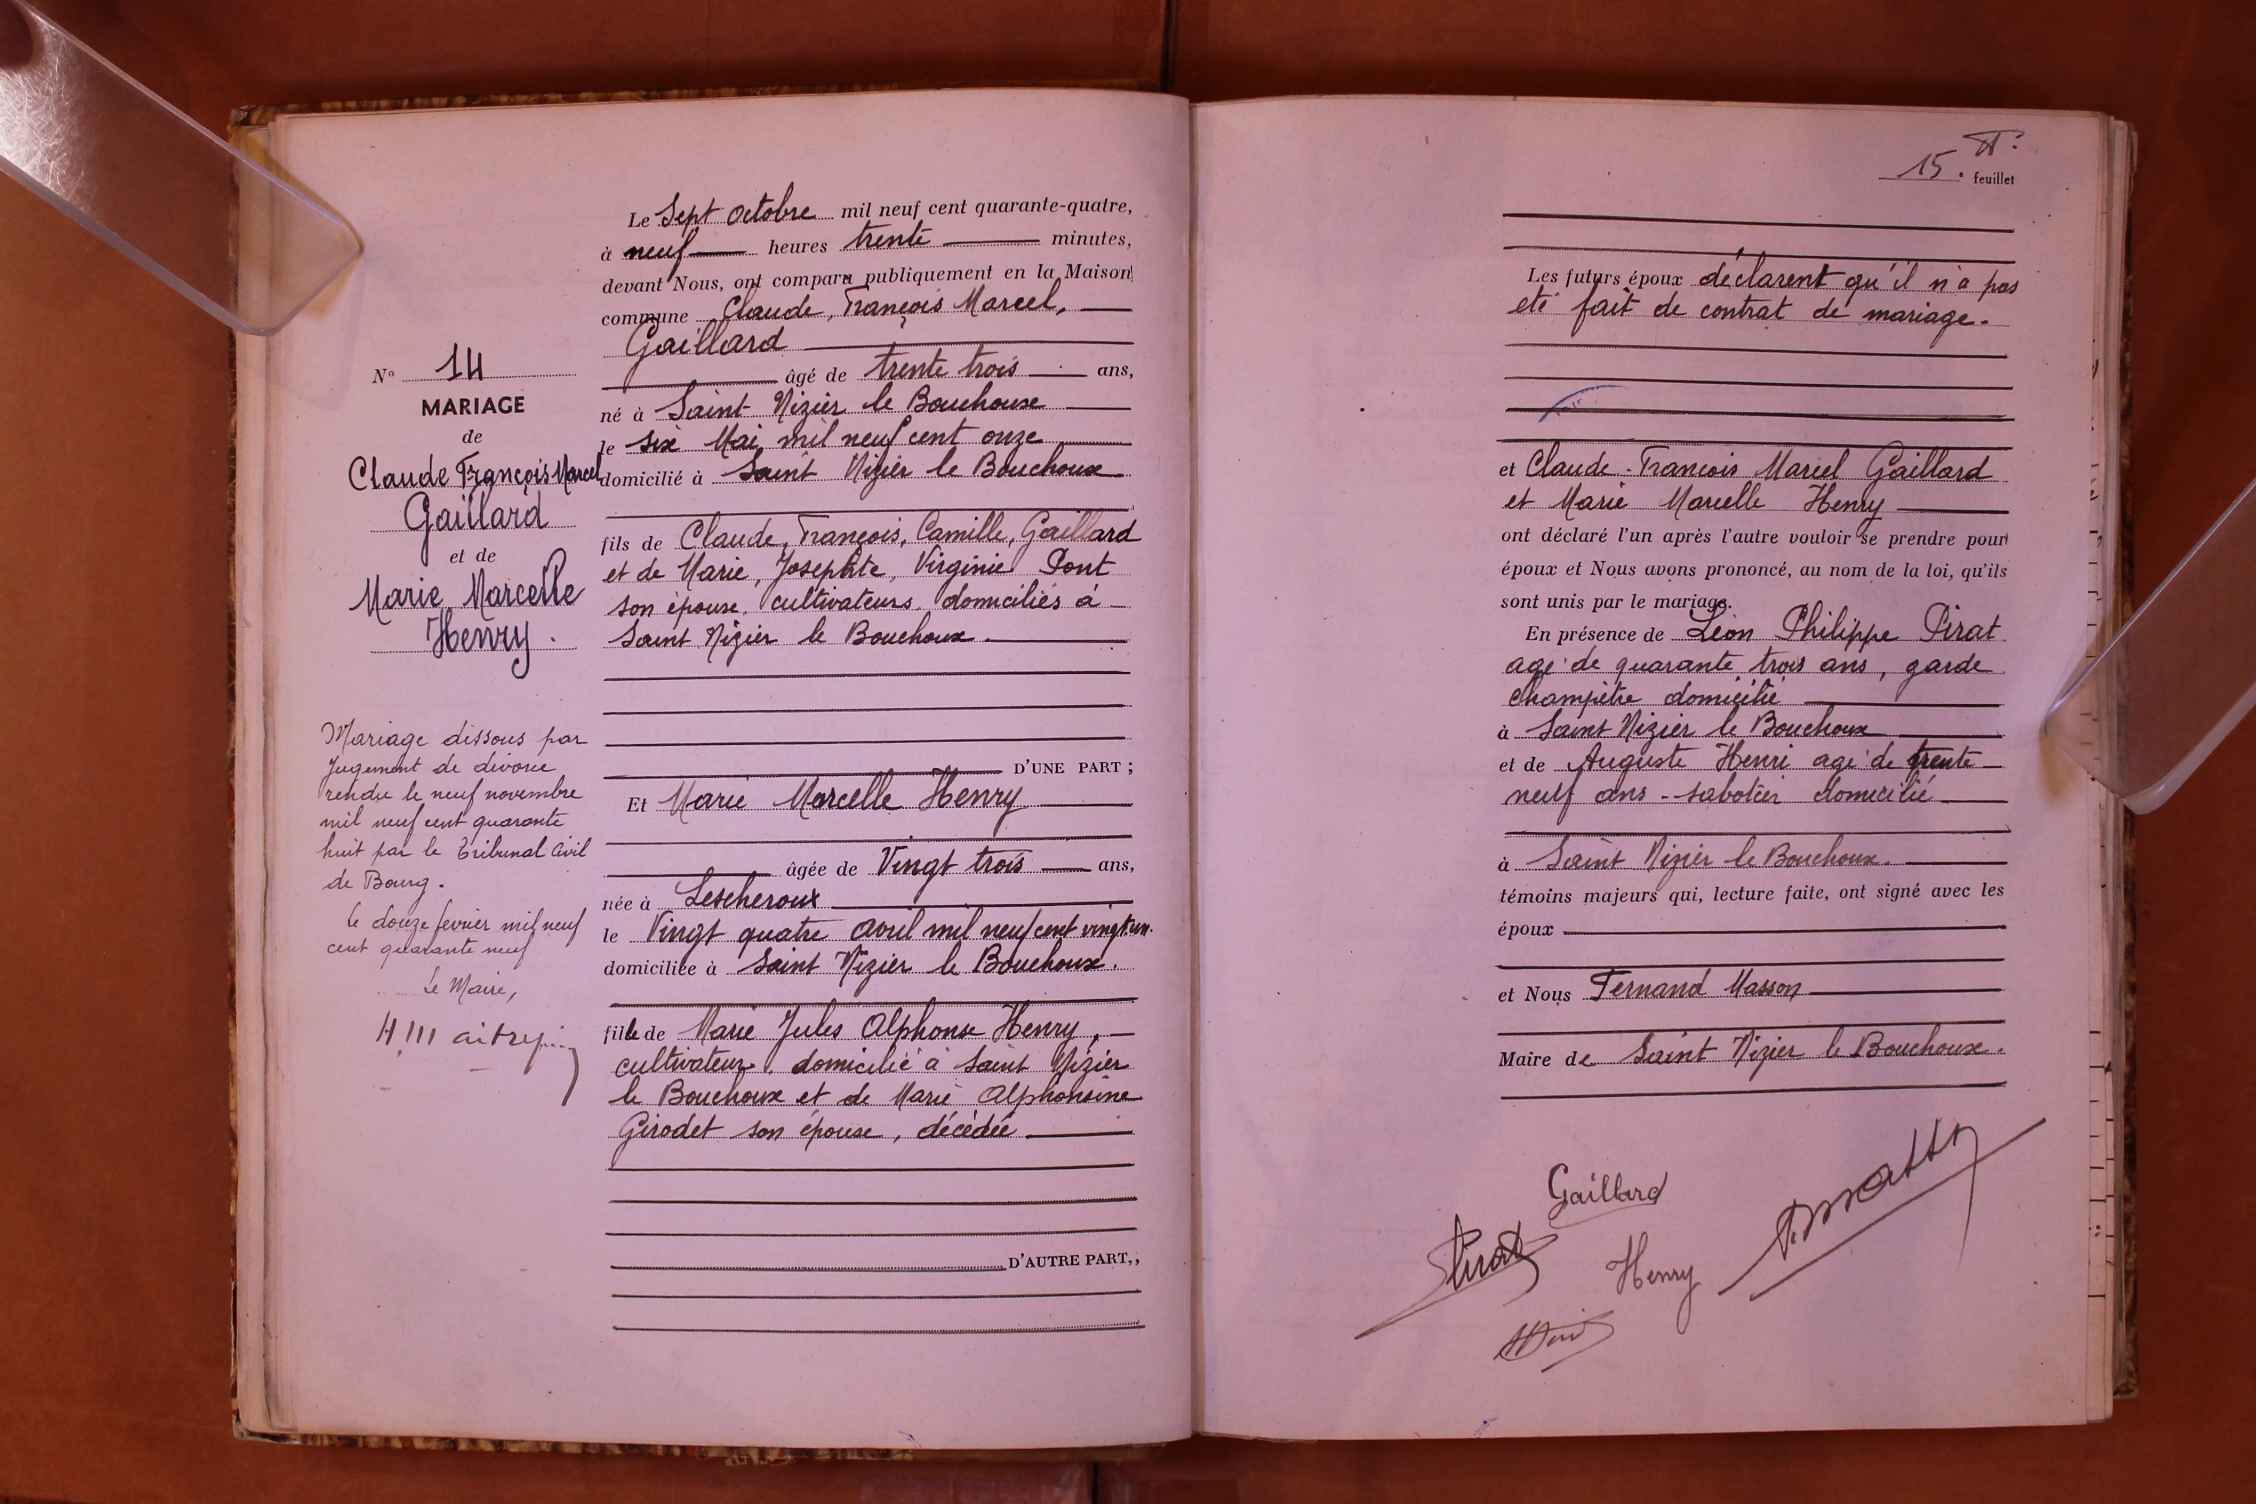 N° 14
MARIAGE
de
Claude François Marcel
Gaillard
et de
Marie Marcelle
Henry.
Mariage dissous par
jugement de divorce
rendu le neuf novembre
mil neuf cent quarante
huit par le Tribunal Civil
de Bourg.
le douze fevrier mil neuf
cent quarante neuf
Le Maire,
Le Sept Octobre mil neuf cent quarante-quatre,
à neuf heures trente minutes,
devant Nous, ont comparu publiquement en la Maison
commune Claude, François Marcel,
Gaillard
âgé de trente trois ans,
né à Saint-Nizier le Bouchoux
le six Mai mil neuf cent onze
domicilié à Saint Nizier le Bouchoux
fils de Claude, François, Camille, Gaillard
et de Marie, Josephte, Virginie Pont
son épouse, cultivateurs, domiciliés à
Saint Nizier le Bouchoux.
D'UNE PART ;
Et Marie Marcelle Henry
âgée de Vingt trois ans,
née à Lescheroux
le Vingt quatre avril mil neuf cent vingt un.
domiciliée à Saint Nizier le Bouchoux.
fille de Marie Jules Alphonse Henry,
cultivateur, domicilié à Saint Nizier
le Bouchoux et de Marie Alphonsine
Girodet son épouse, décédée
D'AUTRE PART,,
15. feuillet
Les futurs époux déclarent qu'il n'a pas
eté fait de contrat de mariage.
et Claude-François Marcel Gaillard
et Marie Marcelle Henry
ont déclaré l'un après l'autre vouloir se prendre pour
époux et Nous avons prononcé, au nom de la loi, qu'ils
sont unis par le mariage.
En présence de Léon Philippe Pirat
agé de quarante trois ans, garde
champêtre domicilié
à Saint Nizier le Bouchoux
et de Auguste Henri agé de trente
neuf ans - sabotier domicilié
à Saint Nizier le Bouchoux.
témoins majeurs qui, lecture faite, ont signé avec les
époux
et Nous Fernand Masson
Maire de Saint Nizier le Bouchoux.
Gaillard
Pirat
Henry